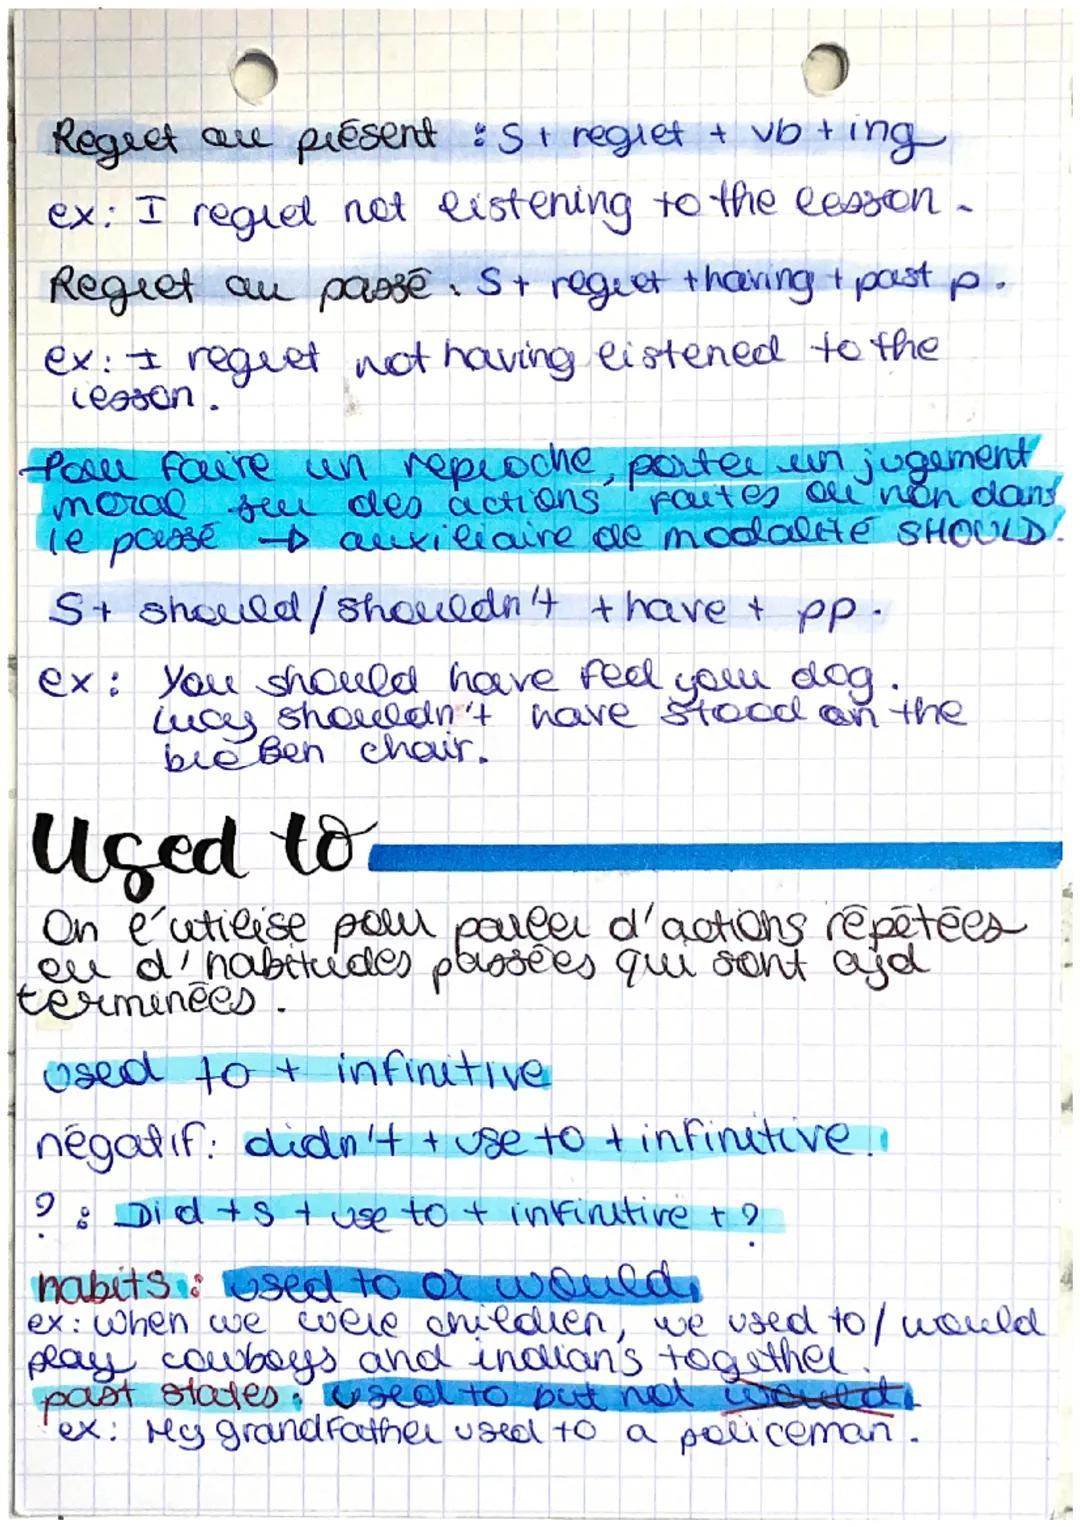 Regret au présent : S + regret + vb + ing
ex: I regret not listening to the lesson.
Regret au passé. S + regret + having + past p.
ex: I regret not having listened to the
lesson.
Pour faire un reproche, porter un jugement
moral sur des actions faites ou non dans
le passé → auxiliaire de modalité SHOULD.
S + should/shouldn't + have + pp.
ex: You should have fed your dog.
Lucy shouldn't have stood on the
Ben chair.
Used to
On l'utilise pour parler d'actions répétées
ou d'habitudes passées qui sont ajd
terminées.
used to + infinitive
négatif: didn't + use to + infinitive.
? : Did + S + use to + infinitive + ?
habits : used to or would.
ex: when we were children, we used to/would
play cowboys and indians together.
past states : used to but not would.
ex: My grandfather used to a policeman.